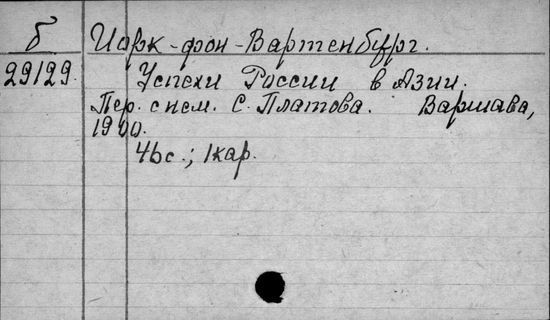 б Иорк-фон-Вартенбург.
29129. Успехи России в Азии.
Пер. с нем. С. Платова. Варшава,
1900.
46с.; 1кар.